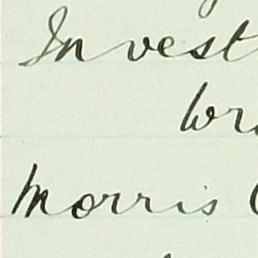 Invest
Wr
Morris